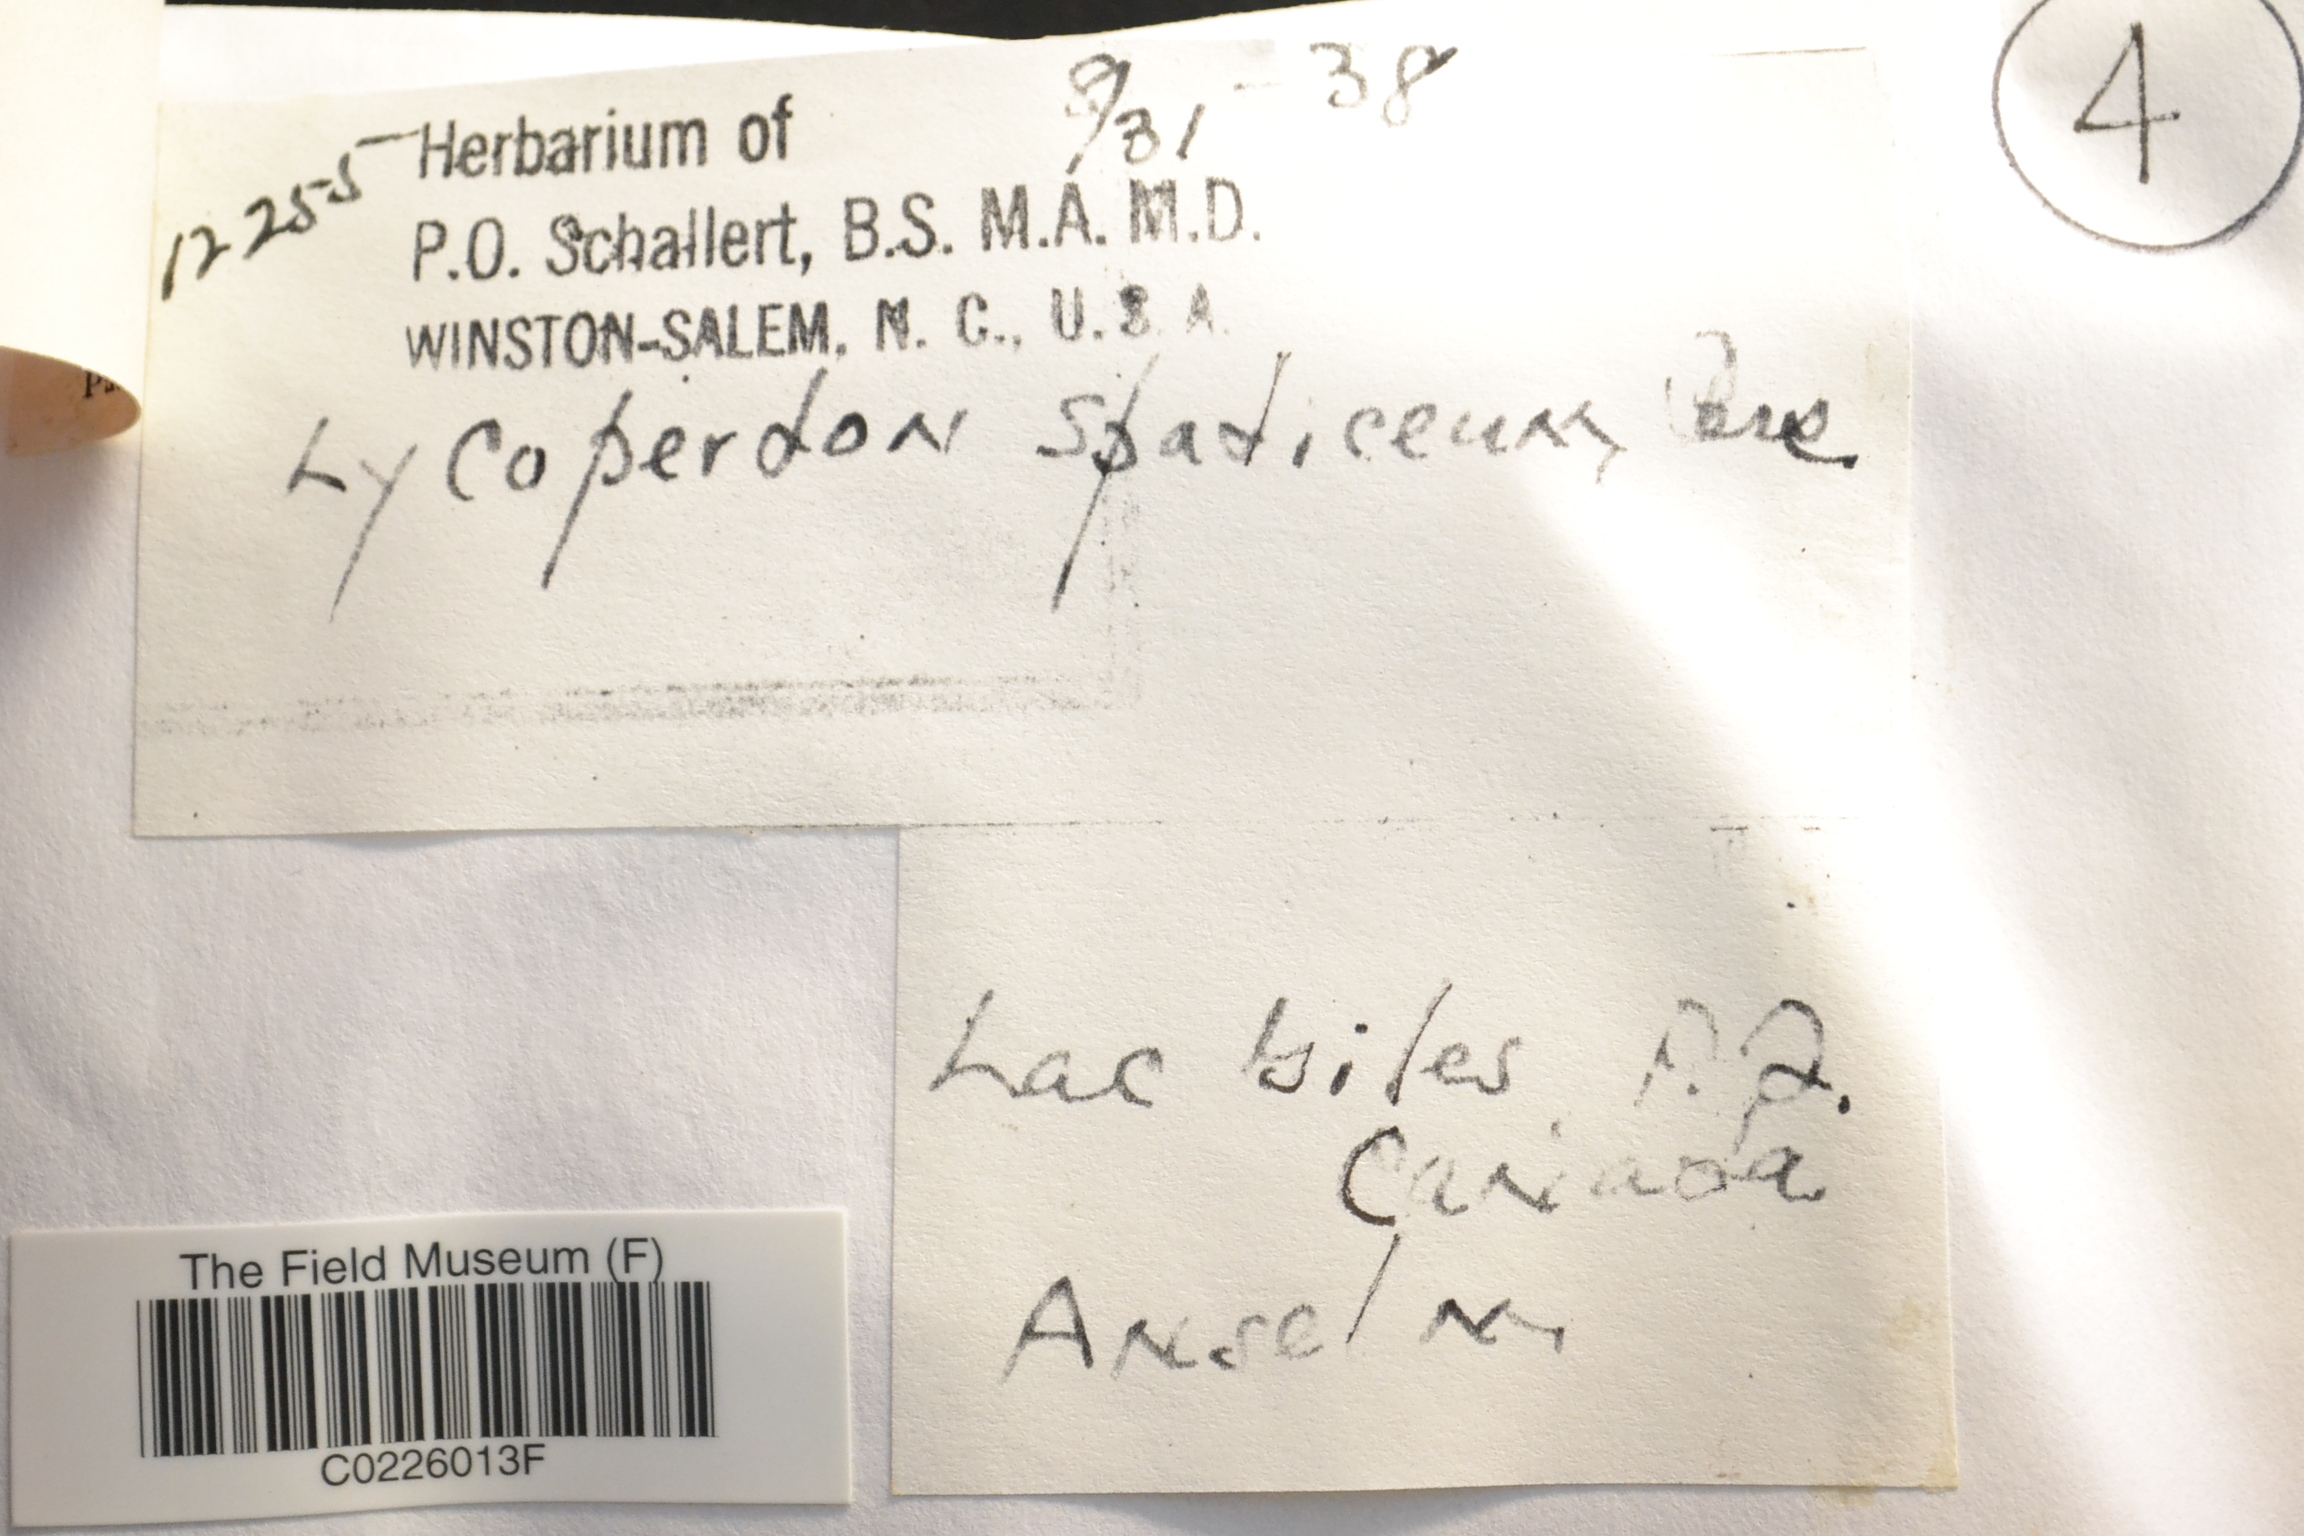 4
8/31-38
12255
Herbarium of
P.O. Schallert, B.S. M.A. M.D.
WINSTON-SALEM, N. C., U. S. A.
Lycoperdon spadiceum, Pers.
Lac Giles, P.Q.
Canada
Anselm
The Field Museum (F)
C0226013F